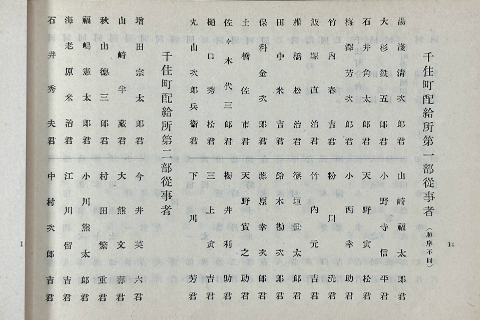 千住町配給所第一部從事者（順序不同）
湯淺清次郎君　山崎福太郎君
大杉鉄五郎君　小野寺信平君
石井角太郎君　天野寅松君
梅澤芳次郎君　小西幸助君
竹内春吉君　粉口　洗君
飯塚直治君　竹内元吉君
湘橋松治君　太郎君
田中米吉君　鈴木勘次郎君
保科金次郎君　藤原幸次郎君
土橋佐市君　天野寅之助君
佐々木代三郎君　櫻井利助君
樋口秀松君　三上寅吉君
丸山次郎兵衞君　下川　芳君
千住町配給所第二部從事者
增田宗太郎君　今井英六君
山崎学藏君　大熊文壽君
秋山德三郎君　村田繁重君
福嶋憲太郎君　小川熊太郎君
海老原米治君　江川留吉君
石井秀夫君　中村次郎吉君